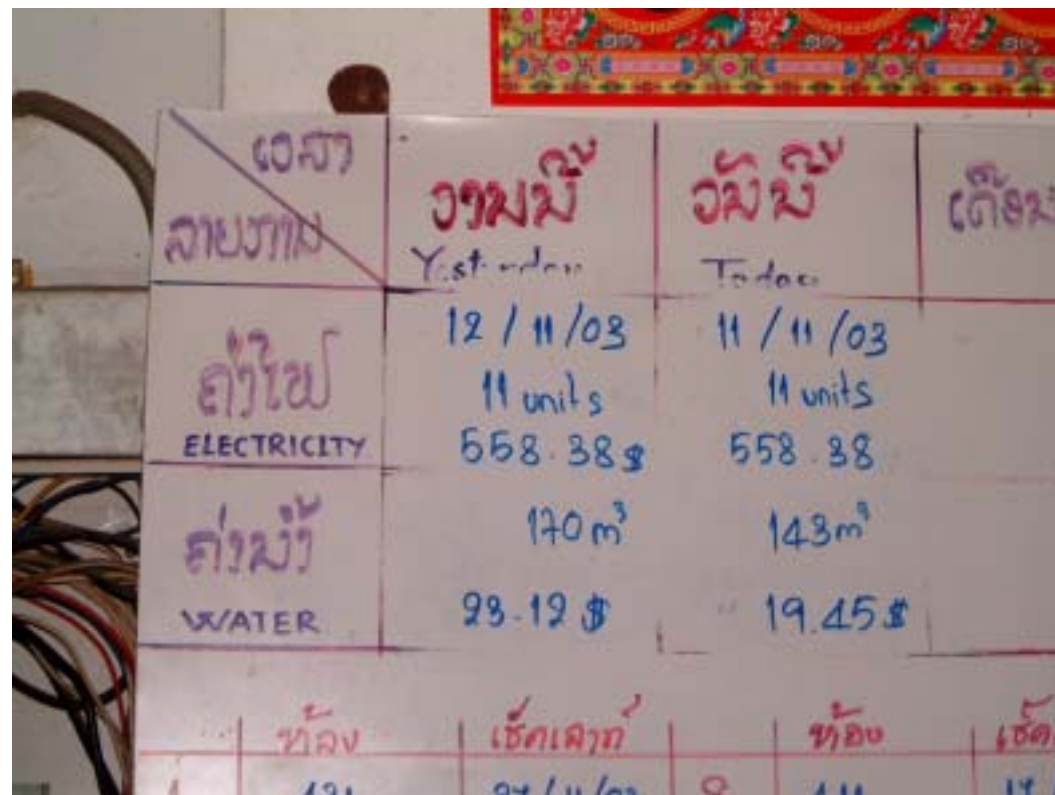 ເວລາ
ລາຍການ
ວານນີ້
Yesterday
ວັນນີ້
Today
ເດືອນ
ຄ່າໄຟ
ELECTRICITY
12/11/03
11 units
558.38$
11/11/03
11 units
558.38
ຄ່ານ້ຳ
WATER
170m³
23.12$
143m³
19.45$
ຫ້ອງ
ຫ້ອງ